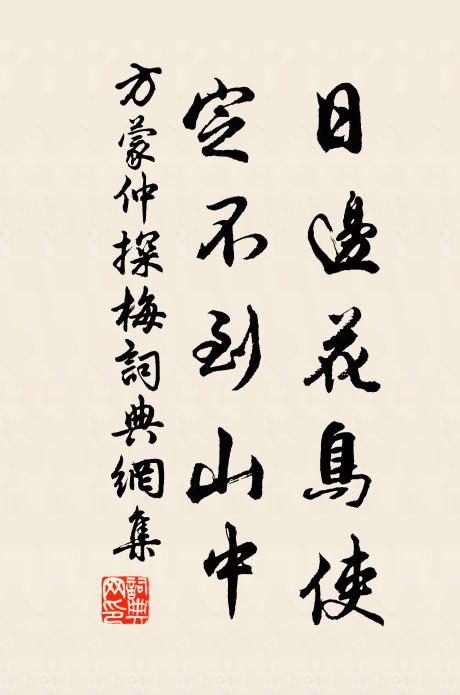 日邊花鳥使
定不到山中
方蒙仲探梅詞典網集
詞典网印